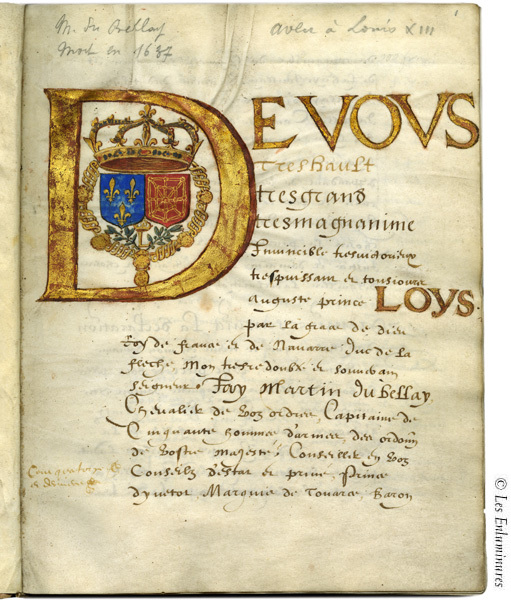 M. du Bellay
Mort en 1637
aveu à Louis XIII
1
DE VOVS
Treshault
tresgrand
tresmagnanime
Invincible tresvigorieux
trespuissant et tousiours
auguste prince LOYS.
par la grace de dieu
Roy de france et de Navarre Duc de la
fleche, Mon tresredoubte et souverain
seigneur, Jay Martin du Bellay,
Chevalier de voz ordres, Capitaine de
Cinquante hommes d'armes, des ordoñ
de vostre maiesté, Conseiller en voz
Conseilz destat et prive, Prince
dyvetot, Marquis de Touarce, Baron
© Les Enluminures